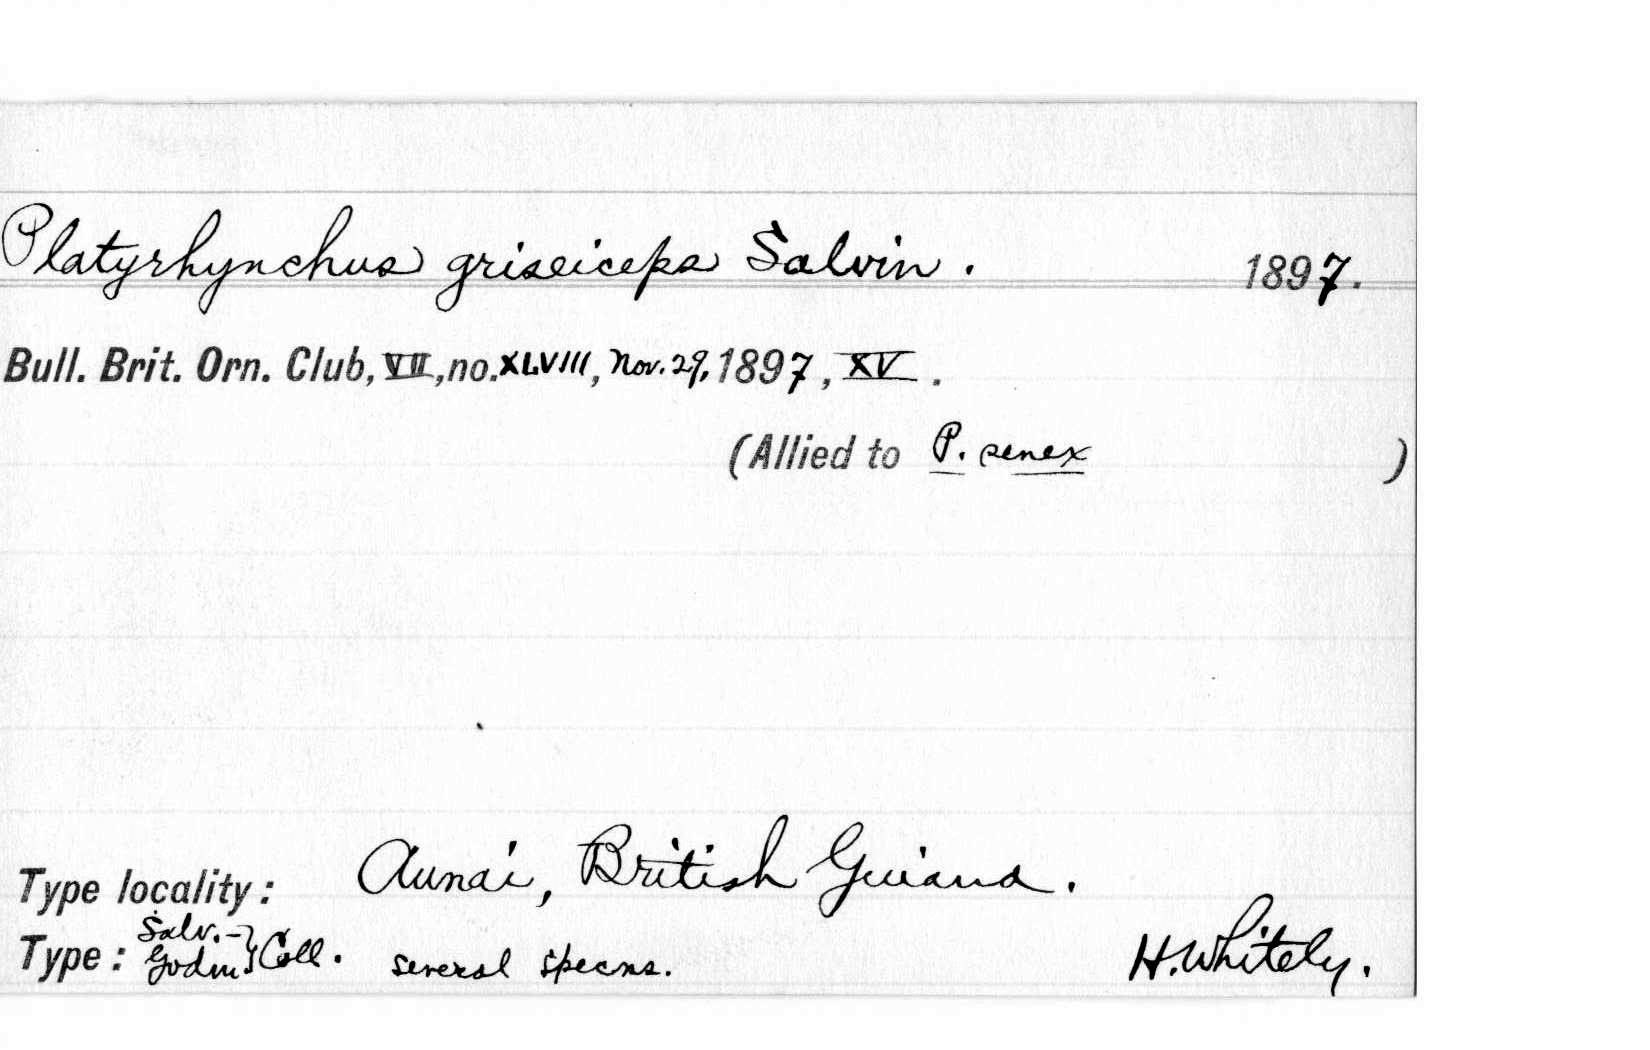 Platyrhynchus griseiceps Salvin. 1897.
Bull. Brit. Orn. Club, VII, no. XLVIII, Nov. 29, 1897, XV.
(Allied to P. senex )
Type locality: Aunai, British Guiana.
Type: Salv.-Godm. Coll. several specns. H. Whitely.